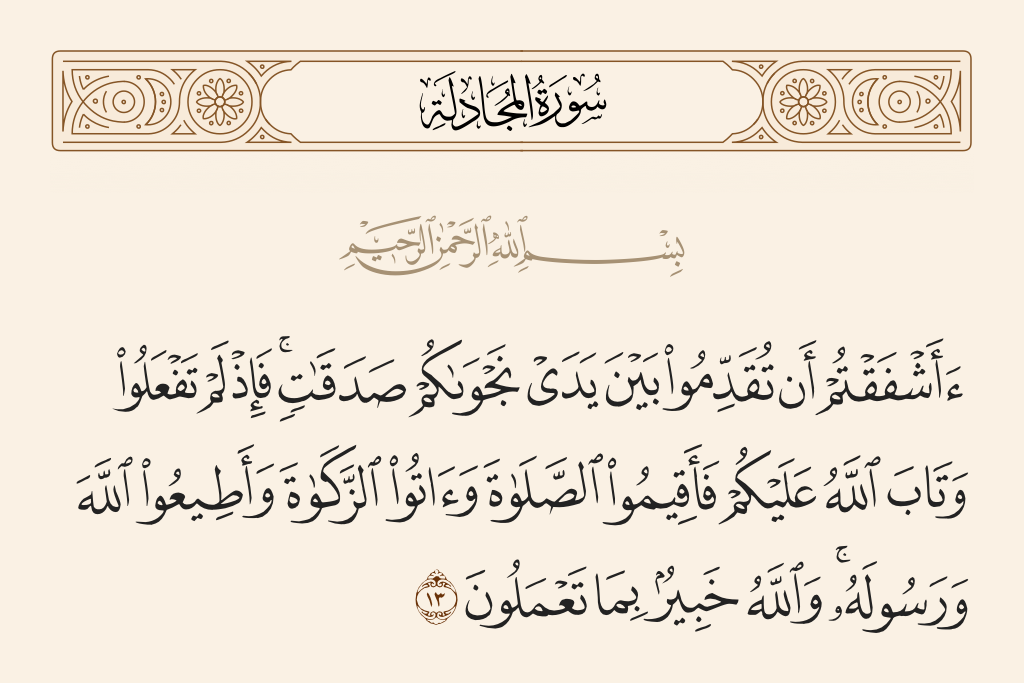 سُورَةُ المُجَادلَةِ
بِسْمِ ٱللَّهِ ٱلرَّحْمَٰنِ ٱلرَّحِيمِ
ءَأَشْفَقْتُمْ أَن تُقَدِّمُوا۟ بَيْنَ يَدَىْ نَجْوَىٰكُمْ صَدَقَـٰتٍ ۚ فَإِذْ لَمْ تَفْعَلُوا۟
وَتَابَ ٱللَّهُ عَلَيْكُمْ فَأَقِيمُوا۟ ٱلصَّلَوٰةَ وَءَاتُوا۟ ٱلزَّكَوٰةَ وَأَطِيعُوا۟ ٱللَّهَ
وَرَسُولَهُۥ ۚ وَٱللَّهُ خَبِيرٌۢ بِمَا تَعْمَلُونَ ١٣